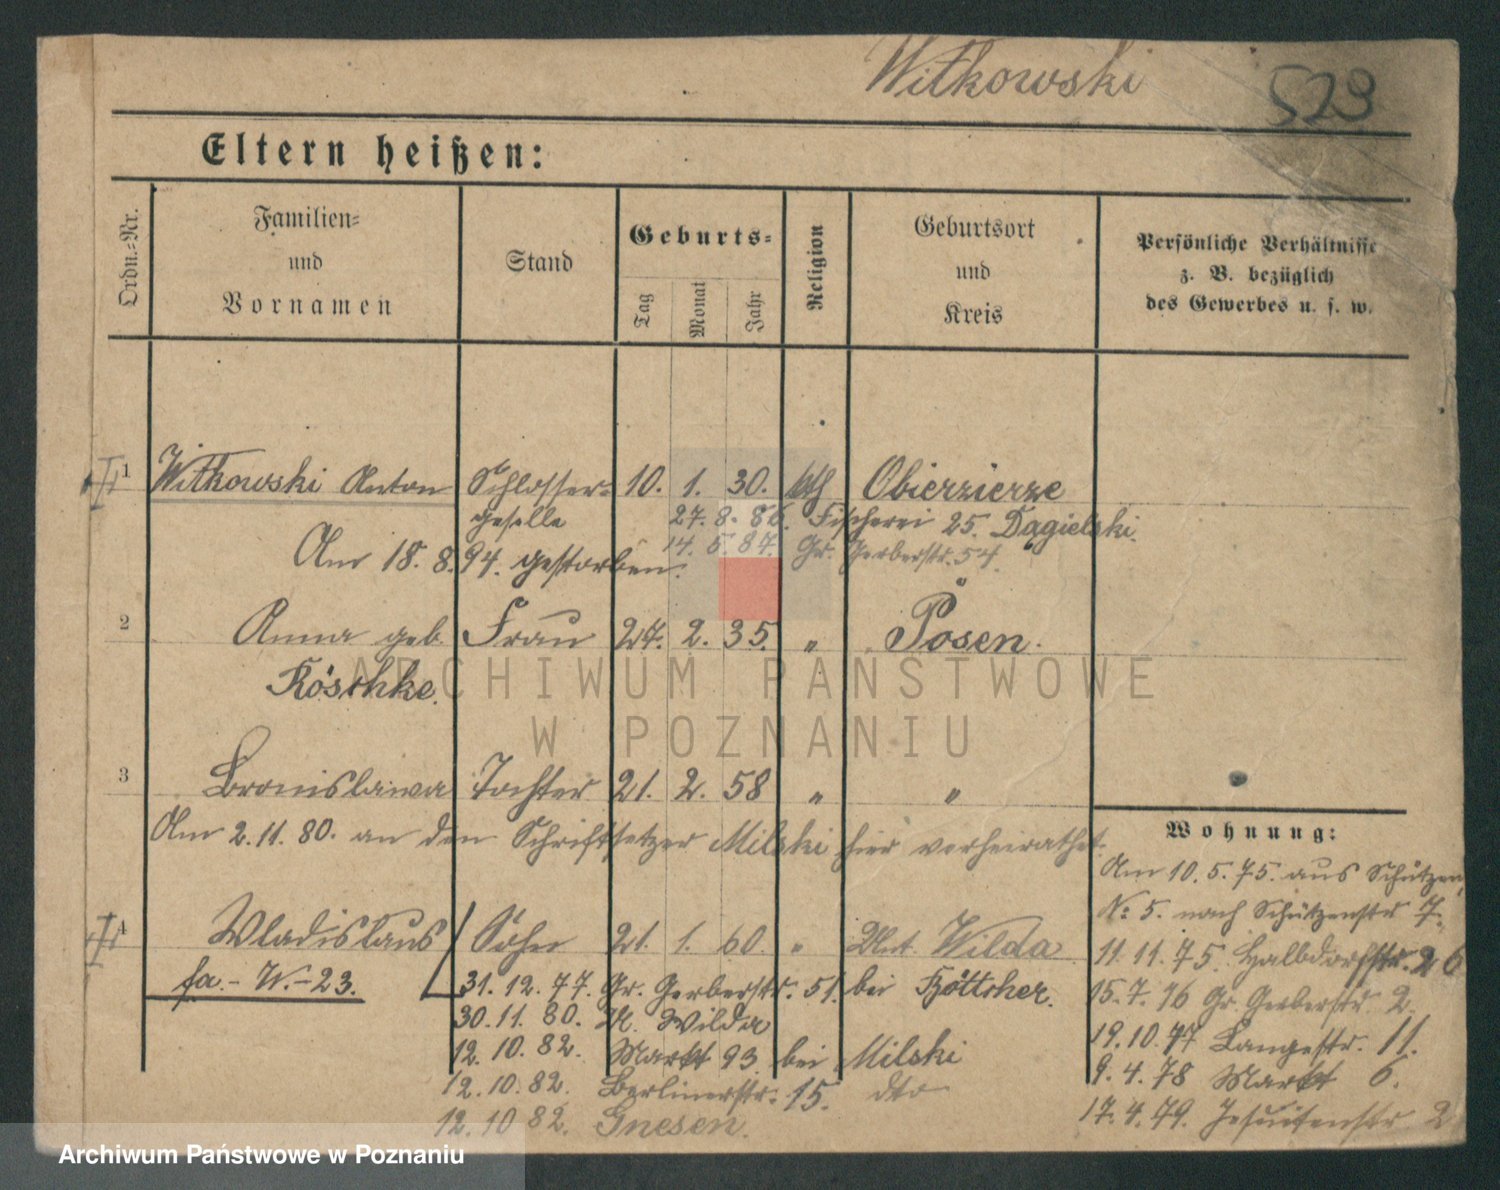 Witkowski 523
Eltern heißen:
Ordn.-Nr.
Familien-
und
Vornamen
Stand
Geburts-
Tag
Monat
Jahr
Religion
Geburtsort
und
Kreis
Persönliche Verhältnisse
z. B. bezüglich
des Gewerbes u. s. w.
1 Witkowski Anton Schlosser- 10. 1. 30. kth Obierzierze
geselle 27. 8. 86. Fischerei 25. Dągielski.
14. 5. 87. Gr. Gerberstr. 54.
Am 18. 8. 94. gestorben.
2 Anna geb. Frau 27. 2. 35. " Posen.
Röschke.
3 Bronislawa Tochter 21. 2. 58 " "
Am 2. 11. 80. an den Schriftsetzer Milski hier verheirathet.
4 Wladislaus Sohn 21. 1. 60. " Unt. Wilda.
fa.- W.-23. 31. 12. 77. Gr. Gerberstr. 51. bei Böttcher.
30. 11. 80. U. Wilda
12. 10. 82. Markt 93 bei Milski
12. 10. 82. Berlinerstr. 15. dto
12. 10 82. Gnesen.
Wohnung:
Am 10. 5. 75. aus Schützen
No 5. nach Schützenstr 7.
11. 11. 75. Halbdorfstr. 26
15. 7. 76 Gr. Gerberstr 2.
19. 10. 77 Langestr. 11.
9. 4. 78 Markt 6.
17. 4. 79. Jesuitenstr 2
ARCHIWUM PAŃSTWOWE
W POZNANIU
Archiwum Państwowe w Poznaniu